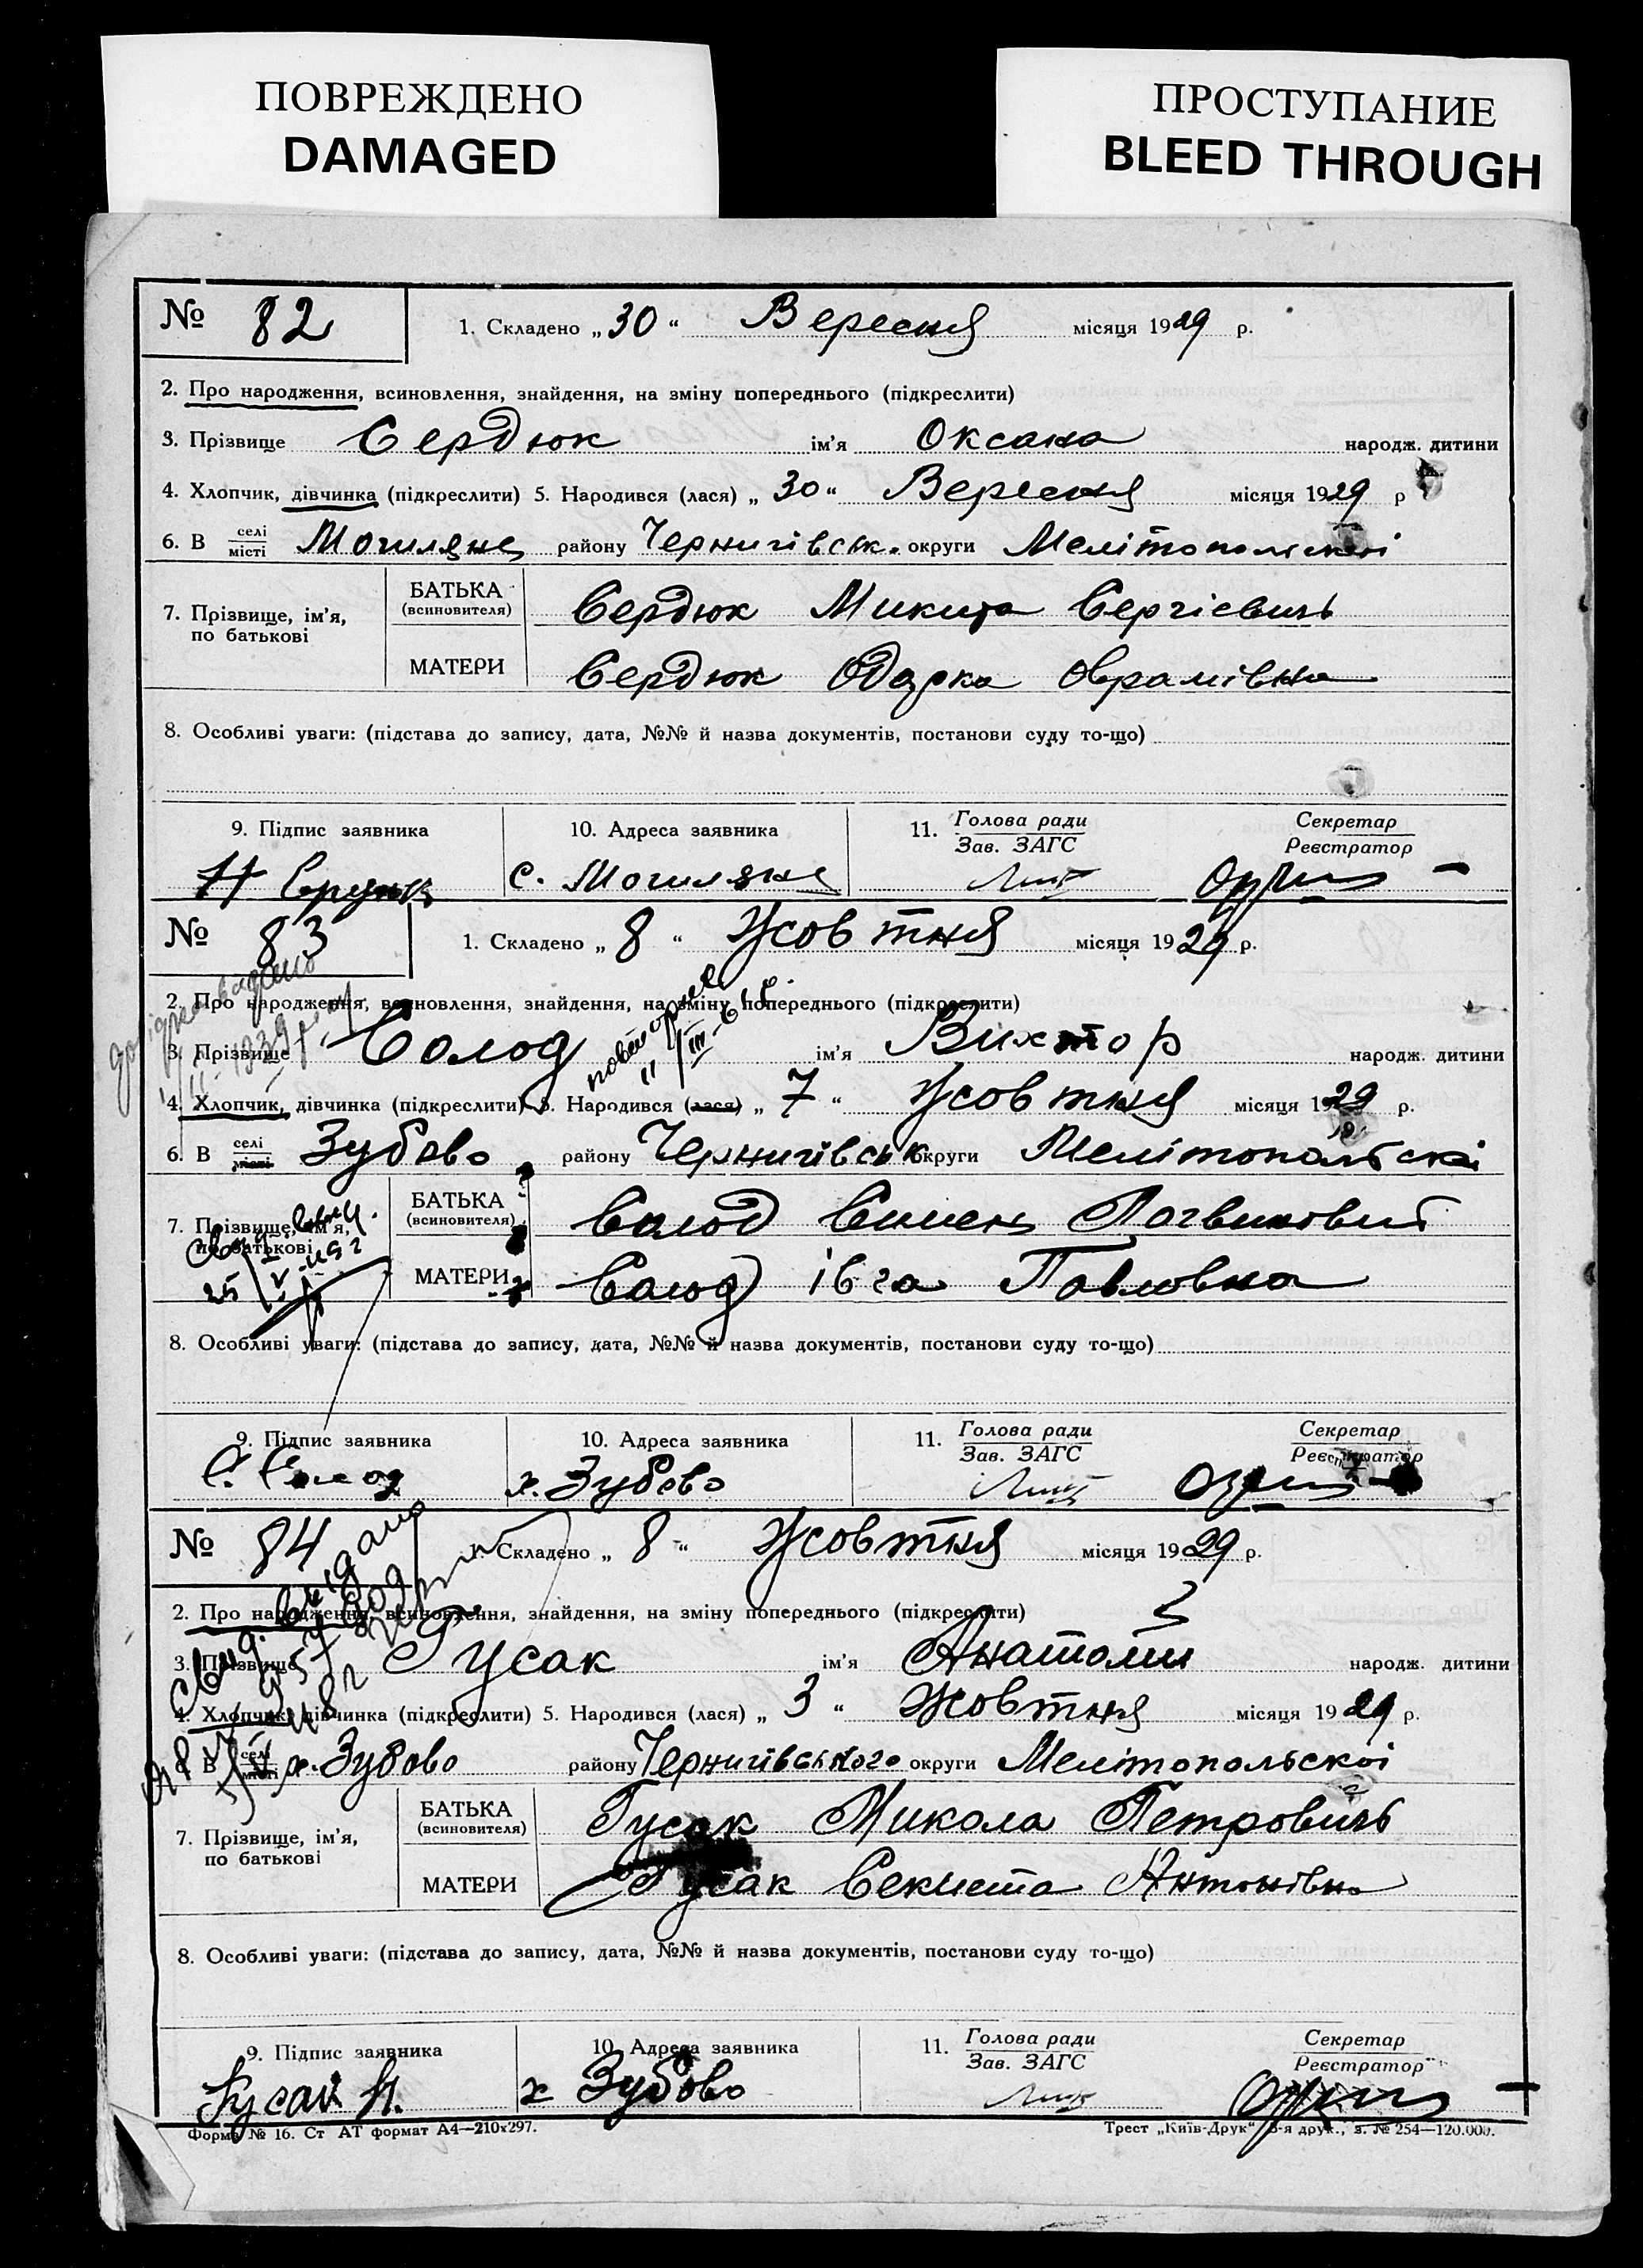 ПОВРЕЖДЕНО
DAMAGED
ПРОСТУПАНИЕ
BLEED THROUGH
№ 82 1. Складено „30“ Вересня місяця 1929 р.
2. Про народження, всиновлення, знайдення, на зміну попереднього (підкреслити)
3. Прізвище Сердюк ім’я Оксана народж. дитини
4. Хлопчик, дівчинка (підкреслити) 5. Народився (лася) „30“ Вересня місяця 1929 р
6. В селі/місті Могиляне району Чернигівськ. округи Мелітопольскоі
7. Прізвище, ім’я, по батькові
БАТЬКА (всиновителя) Сердюк Микита Сергієвичь
МАТЕРИ Сердюк Одарка Оврамівна
8. Особливі уваги: (підстава до запису, дата, №№ й назва документів, постанови суду то-що)
9. Підпис заявника 10. Адреса заявника 11. Голова ради/Зав. ЗАГС Секретар/Реєстратор
с. Могиляне
№ 83 1. Складено „8“ Жовтня місяця 1929 р.
2. Про народження, всиновлення, знайдення, на зміну попереднього (підкреслити)
3. Прізвище Солод ім’я Виктор народж. дитини
4. Хлопчик, дівчинка (підкреслити) 5. Народився (лася) „7“ Жовтня місяця 1929 р.
6. В селі/місті Зубово району Чернигівськ округи Мелітопольскі
7. Прізвище, ім’я, по батькові
БАТЬКА (всиновителя) Солод Семен
МАТЕРИ Солод Івга Павловна
8. Особливі уваги: (підстава до запису, дата, №№ й назва документів, постанови суду то-що)
9. Підпис заявника 10. Адреса заявника 11. Голова ради/Зав. ЗАГС Секретар/Реєстратор
С. Солод х. Зубово
№ 84 1. Складено „8“ Жовтня місяця 1929 р.
2. Про народження, всиновлення, знайдення, на зміну попереднього (підкреслити)
3. Прізвище Гусак ім’я Анатолій народж. дитини
4. Хлопчик, дівчинка (підкреслити) 5. Народився (лася) „3“ Жовтня місяця 1929 р.
6. В селі/місті х. Зубово району Чернигівського округи Мелітопольскоі
7. Прізвище, ім’я, по батькові
БАТЬКА (всиновителя) Гусак Микола Петровичь
МАТЕРИ Гусак Секлета Антонівна
8. Особливі уваги: (підстава до запису, дата, №№ й назва документів, постанови суду то-що)
9. Підпис заявника 10. Адреса заявника 11. Голова ради/Зав. ЗАГС Секретар/Реєстратор
Гусак Н. х Зубово
Форма № 16. Ст АТ формат А4—210×297.
Трест „Київ-Друк“ 3-я друк., з. № 254—120.000.